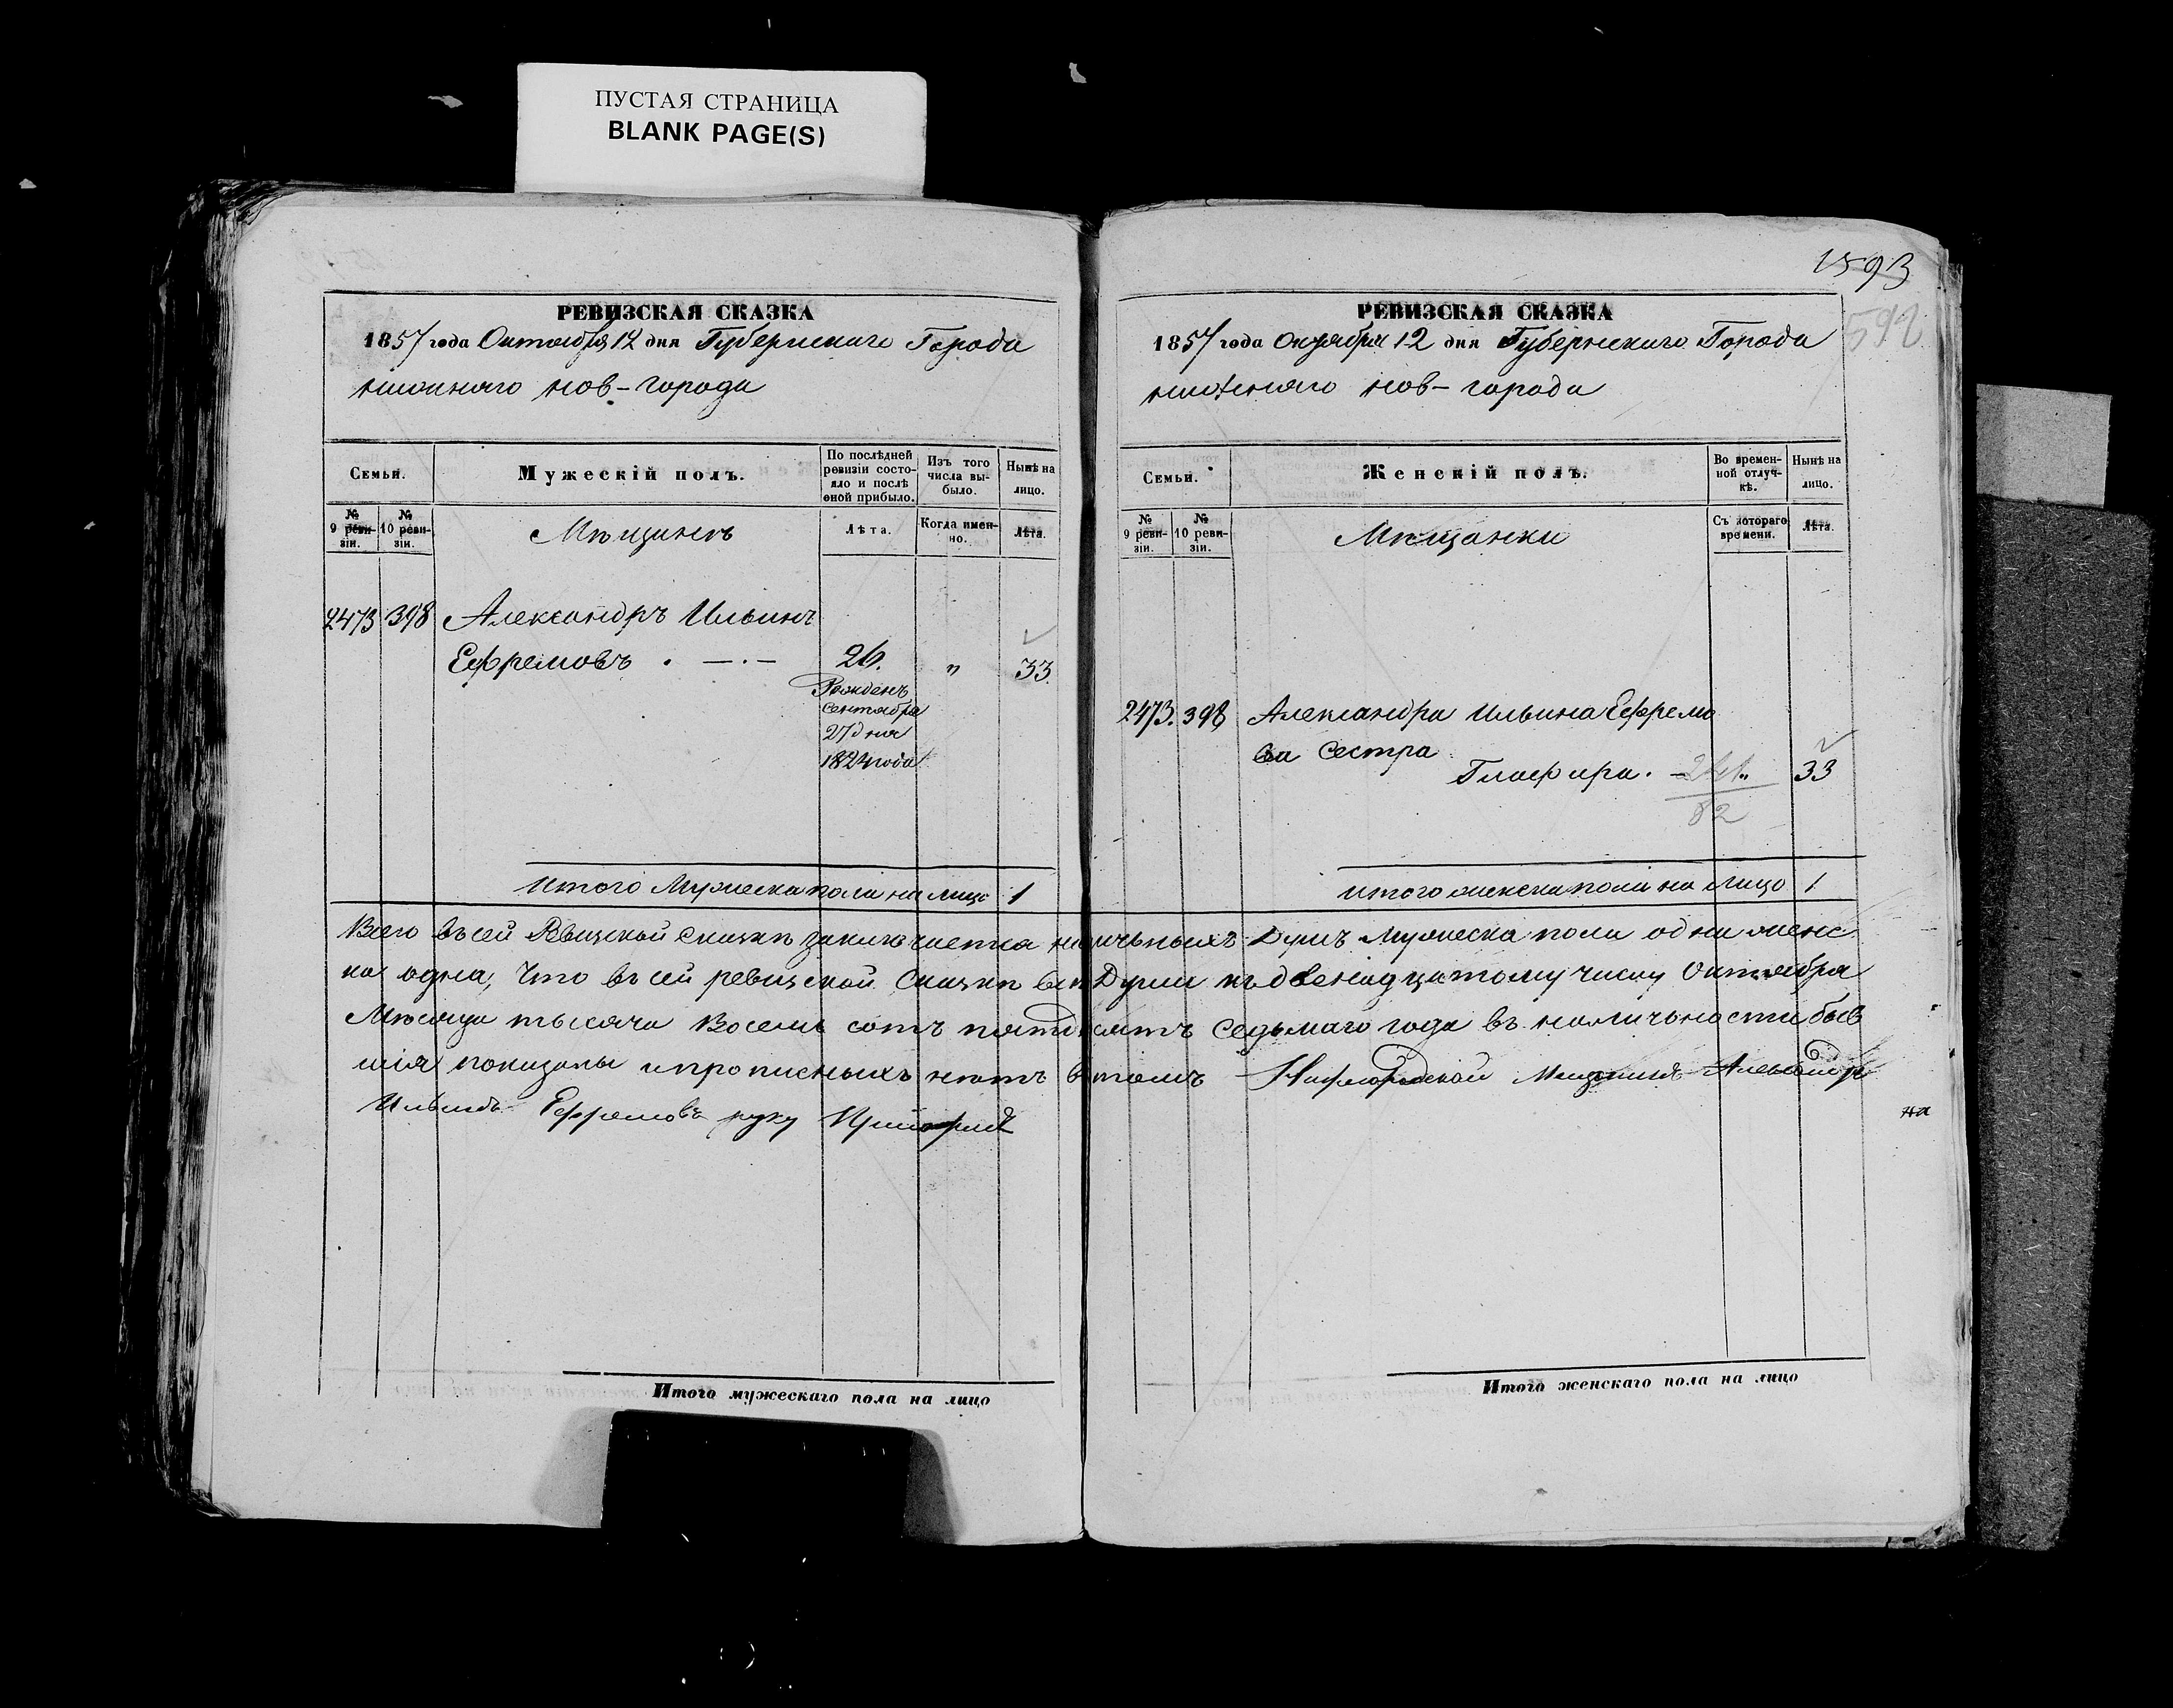 ПУСТАЯ СТРАНИЦА
BLANK PAGE(S)
РЕВИЗСКАЯ СКАЗКА
1857 года Октября 12 дня Губернскаго Города
нижняго нов-города
Семьи.
Мужескій полъ.
По послѣдней ревизіи состояло и послѣ оной прибыло.
Изъ того числа выбыло.
Нынѣ на лицо.
№ 9 ревизіи.
№ 10 ревизіи.
Мѣщинъ
Лѣта.
Когда именно.
Лѣта.
2473 398 Александръ Ильинъ
Ефремовъ . — . — 26. " 33
Рожденъ
сентября
27 дня
1824 года
Итого Мужеска пола на лицо 1
1593
592
РЕВИЗСКАЯ СКАЗКА
1857 года Октября 12 дня Губернскаго Города
нижняго нов-города
Семьи.
Женскій полъ.
Во временной отлучкѣ.
Нынѣ на лицо.
№ 9 ревизіи.
№ 10 ревизіи.
Мѣщанки
Съ котораго времени.
Лѣта.
2473. 398 Александра Ильина Ефремо
ва сестра
Глафира. " 33
82
Итого женска пола на лицо 1
Всего въ сей Ревизской сказкѣ заключается наличныхъ Душъ Мужеска пола одна женс
ка одна, Что въ сей ревизской Сказкѣ всѣ Души къ двенадцатому числу Октября
Мѣсяца тысяча Восемь сотъ пятдесятъ Седьмаго года въ наличьности быв
шія показаны и прописныхъ нѣтъ втомъ Мещанинъ Александръ
Ильинъ Ефремовъ руку Приложилъ
на
Итого мужескаго пола на лицо
Итого женскаго пола на лицо